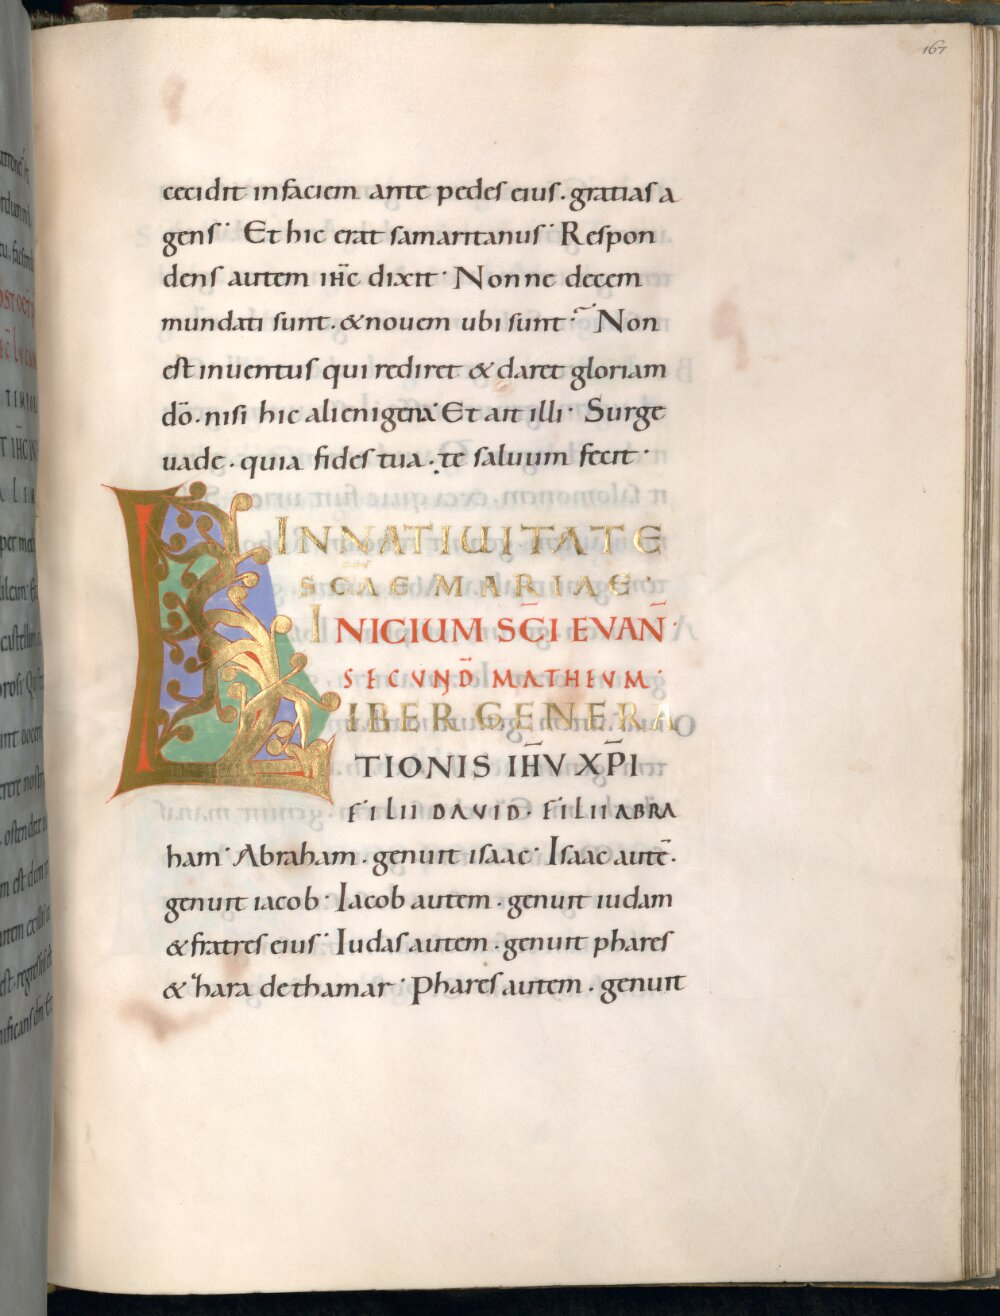 167
cecidit in faciem ante pedes eius· gratias a
gens· Et hic erat samaritanus· Respon
dens autem ihc̄ dixit· Nonne decem
mundati sunt· & nouem ubi sunt· Non
est inuentus qui rediret & daret gloriam
dō· nisi hic alienigena· Et ait illi· Surge
uade· quia fides tua· te saluum fecit·
IN NATIUITATE
SCAE MARIAE·
INICIUM SC̄I EVAN̄·
SECUND̄ MATHEUM·
LIBER GENERA
TIONIS IH̄V XP̄I
FILII DAVID· FILII ABRA
ham· Abraham· genuit isaac· Isaac autē·
genuit iacob· Iacob autem· genuit iudam
& fratres eius· Iudas autem· genuit phares
& hara de thamar· Phares autem· genuit